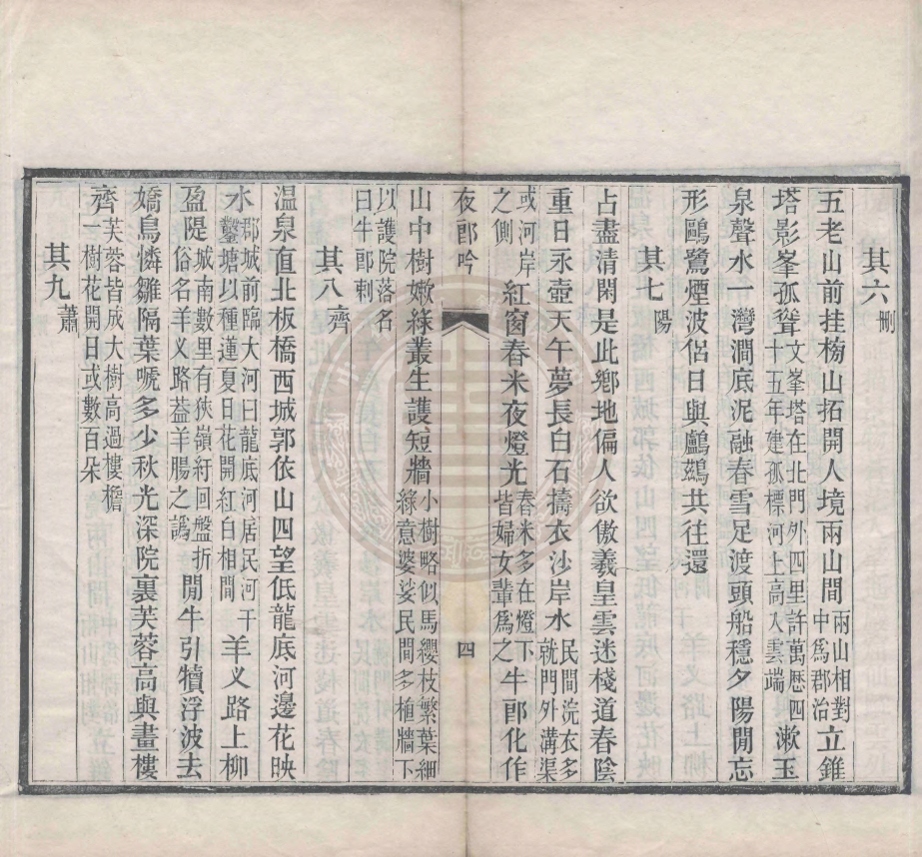 其六刪
五老山前挂榜山拓開人境兩山間兩山相對中爲郡治立錐
塔影峯孤聳文峯塔在北門外四里許萬歷四十五年建孤標河上高入雲端漱玉
泉聲水一灣澗底泥融春雪足渡頭船穩夕陽閒忘
形鷗鷺煙波侶日與鸕鷀共往還
其七陽
占盡清閑是此鄉地偏人欲傲羲皇雲迷棧道春陰
重日永壺天午夢長白石擣衣沙岸水民間浣衣多就門外溝渠
或河岸之側紅窗舂米夜燈光舂米多在燈下皆婦女輩爲之牛郎化作
夜郎吟
四
山中樹嫩綠叢生護短牆小樹略似馬纓枝繁葉細綠意婆娑民間多植牆下
以護院落名曰牛郎刺
其八齊
溫泉直北板橋西城郭依山四望低龍底河邊花映
水郡城前臨大河曰龍底河居民河干鑿塘以種蓮夏日花開紅白相間羊义路上柳
盈隄城南數里有狹嶺紆回盤折俗名羊义路葢羊腸之譌閒牛引犢浮波去
嬌鳥憐雛隔葉嗁多少秋光深院裏芙蓉高與畫樓
齊芙蓉皆成大樹高過樓檐一樹花開日或數百朵
其九蕭